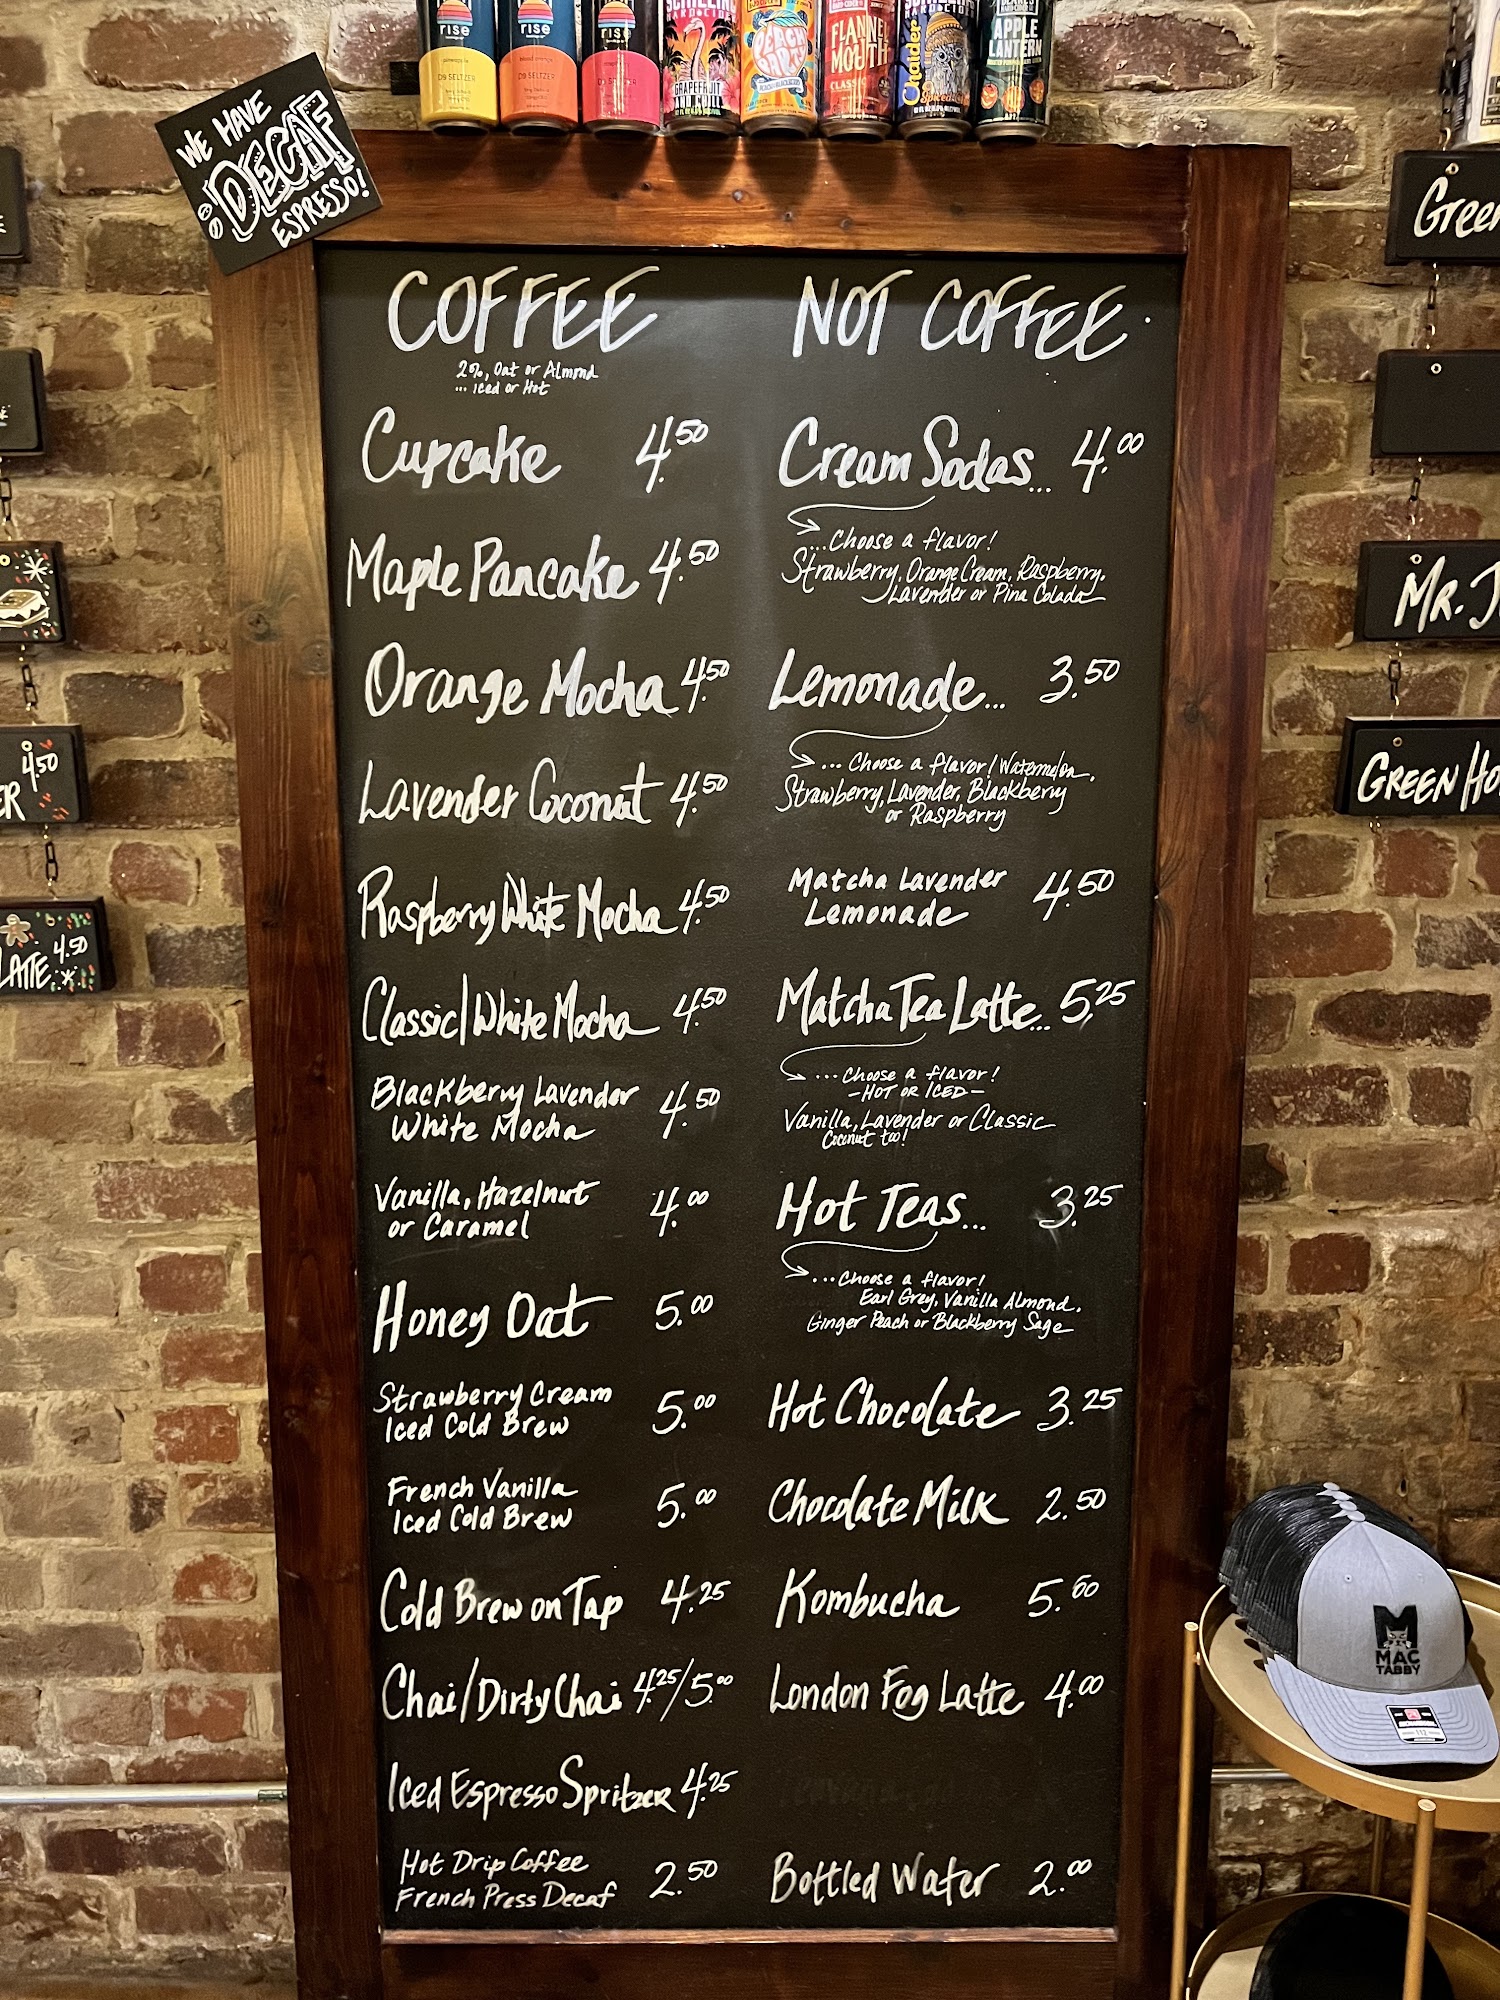 rise
rise
rise
pineapple
blood orange
CBD SELTZER
SCHILLING
HARD CIDER
GRAPEFRUIT
AND CHILL
PEACH
PARTY
FLANNEL
MOUTH
CLASSIC
Chaider
Spiced
APPLE
LANTERN
WE HAVE
DECAF
ESPRESSO!
COFFEE
2%, Oat or Almond
... Iced or Hot
Cupcake 4.50
Maple Pancake 4.50
Orange Mocha 4.50
Lavender Coconut 4.50
Raspberry White Mocha 4.50
Classic/White Mocha 4.50
Blackberry Lavender
White Mocha 4.50
Vanilla, Hazelnut
or Caramel 4.00
Honey Oat 5.00
Strawberry Cream
Iced Cold Brew 5.00
French Vanilla
Iced Cold Brew 5.00
Cold Brew on Tap 4.25
Chai/Dirty Chai 4.25/5.00
Iced Espresso Spritzer 4.25
Hot Drip Coffee
French Press Decaf 2.50
NOT COFFEE
Cream Sodas... 4.00
...Choose a flavor!
Strawberry, Orange Cream, Raspberry,
Lavender or Pina Colada
Lemonade... 3.50
... Choose a flavor! Watermelon,
Strawberry, Lavender, Blackberry
or Raspberry
Matcha Lavender
Lemonade 4.50
Matcha Tea Latte... 5.25
... Choose a flavor!
-HOT OR ICED-
Vanilla, Lavender or Classic
Coconut too!
Hot Teas... 3.25
...Choose a flavor!
Earl Grey, Vanilla Almond,
Ginger Peach or Blackberry Sage
Hot Chocolate 3.25
Chocolate Milk 2.50
Kombucha 5.00
London Fog Latte 4.00
Bottled Water 2.00
4.50
ER
LATTE 4.50
Green
MR. J
GREEN HO
M
MAC
TABBY
112